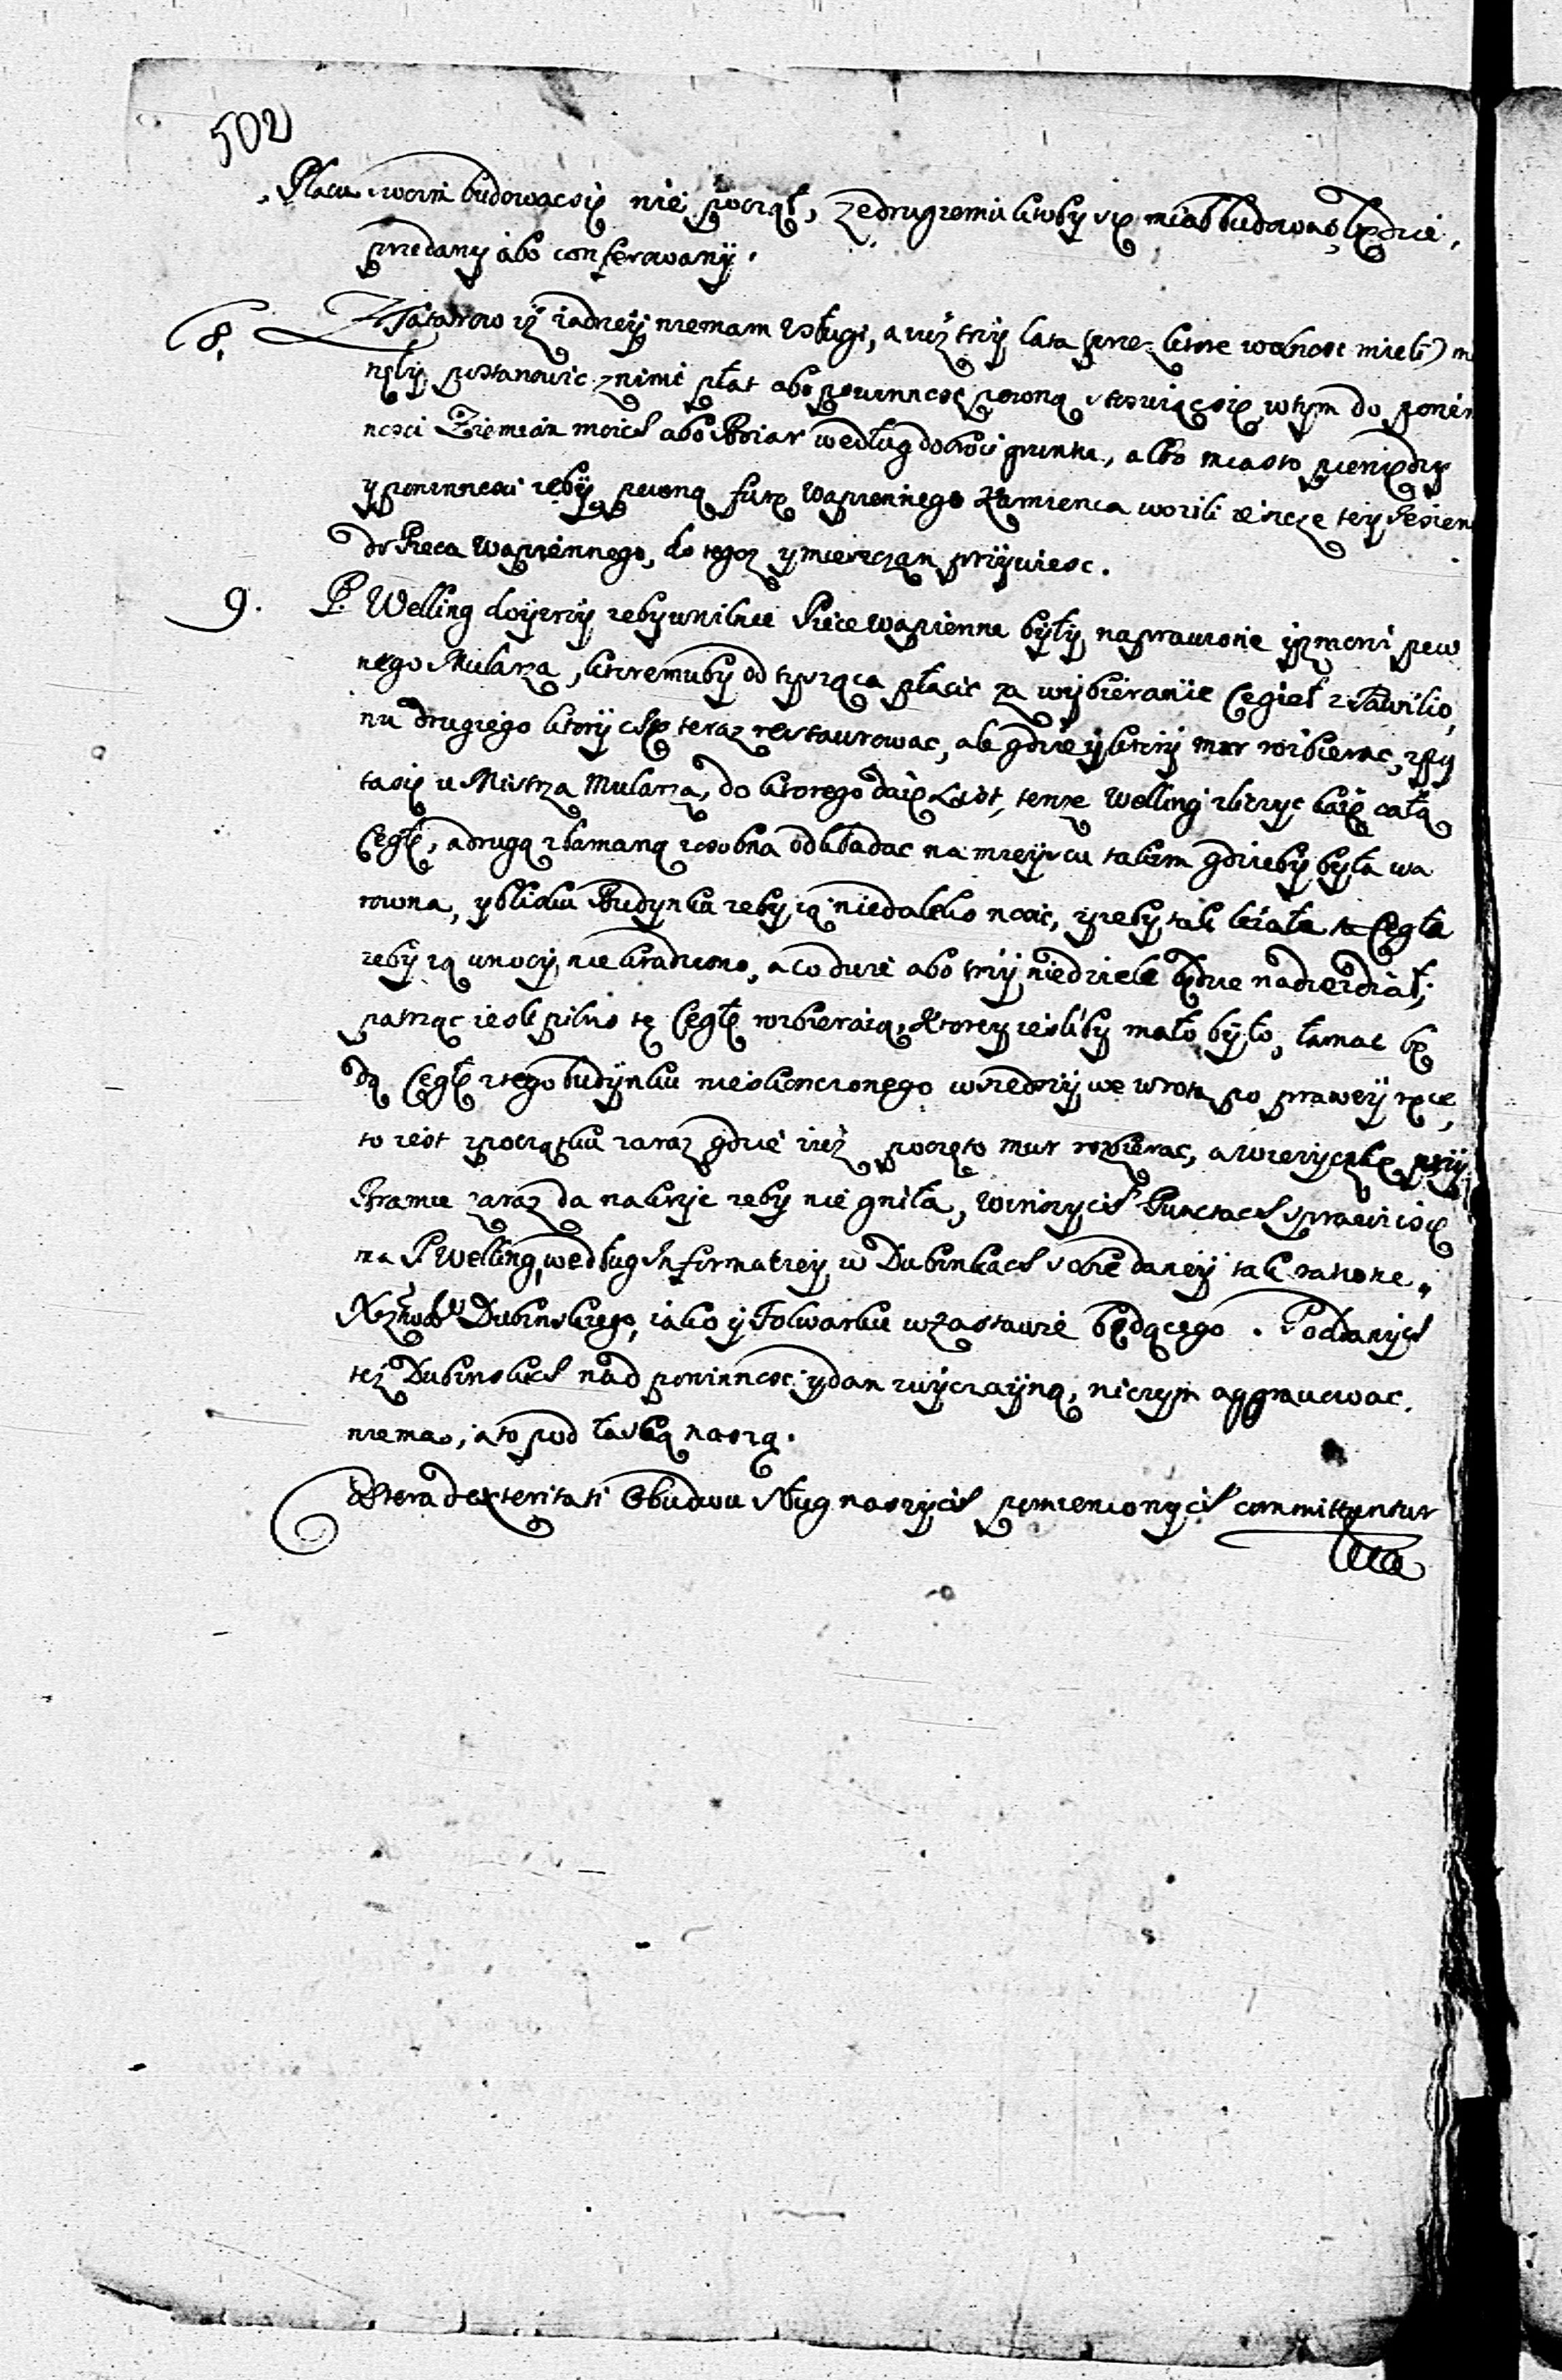 502
Placu swom budowac się nie począł, że drugiemu ktoby się miał budowac będzie,
przedany abo conferowany.
8. Z Tatarow iż żadnej niemam usługi, a już trzy lata (przez ktore wolnosc mieli) mi
nęły postanowic z nimi płat abo powinnosc pewną stosując się w tym do powin
nosci Ziemian moich abo Boiar według dobroci gruntu, albo miasto pieniędzy
y powinnosci żeby pewną furę Wapiennego Kamienia wozili ieszcze tey Jesieni
do Pieca Wapiennego, do tegoż y mieszczan przywiesc.
9. P. Welling doyzrzy żeby w Wilnie Piece Wapienne były naprawione y zmowi pew
nego Mularza, ktoremuby od tysiąca płacic za wybieranie Cegieł z Pawilio,
nu drugiego ktory chcę teraz restaurowac, ale gdzie y ktory mur rozbierac, spy
ta się u Mistrza Mularza, do ktorego daię List, tenże Welling zliczyc każe całą
Cegłę, a drugą złamaną z osobna odkładac na mieyscu takim gdzieby była wa
rowna, y blisku Budynku żeby ią niedaleko nosic, y żeby tak leżała ta Cegła
żeby ią w nocy nie kradziono, a co dwie abo trzy niedziele będzie nadzieżdżał,
patrząc iesli pilno tę Cegłę rozbieraią, Ktorey iesliby mało było, łamac bę
dą Cegłę z tego budynku nieskonczonego w siedzoy we wrota po prawey ręce,
to iest z początku zaraz gdzie iuż poczęto mur rozbierac, a wieżyczkę przy
Bramie zaraz da nakryc żeby nie gniła, W inszych Punctach sprawi się
ma P Welling według Informatiey w Dubinkach sobie daney tak ratione
Xięstwa Dubinskiego, iako y Folwarku w zastawie będącego. Poddanych
też Dubinskich nad powinnosc y dan zwyczayną, niczym aggrawowac
niema, a to pod łaską naszą.
Cetera dexteritati Obudwu sług naszych pomienionych committuntur